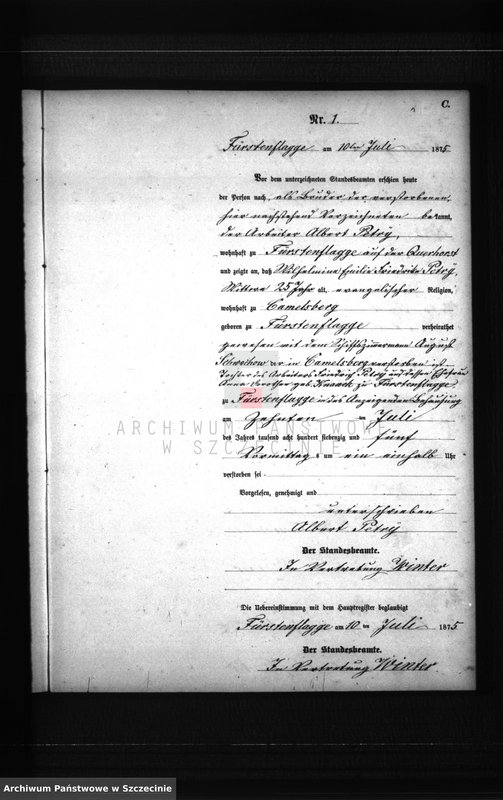 C.
Nr. 1.
Fürstenflagge am 10ten Juli 1875
Vor dem unterzeichneten Standesbeamten erschien heute
der Person nach, als Bruder der verstorbenen,
hier nächstehend Verzeichneten bekannt,
der Arbeiter Albert Petrÿ,
wohnhaft zu Fürstenflagge auf der Querhorst
und zeigte an, daß Wilhelmine Emilie Friedrike Petrÿ,
Wittwe 25 Jahr alt, evangelischer Religion,
wohnhaft zu Camelsberg
geboren zu Fürstenflagge verheirathet
gewesen mit dem Schiffszimmermann August
der in Camelsberg verstorben ist
Tochter des Arbeiters Friedrich Petrÿ und dessen Ehefrau
Anna geb. zu Fürstenflagge
zu Fürstenflagge in des Anzeigenden Behausung
am Zehnten ten Juli
des Jahres tausend acht hundert siebenzig und fünf
Vormittags um ein einhalb Uhr
verstorben sei
Vorgelesen, genehmigt und
unterschrieben
Albert Petrÿ
Der Standesbeamte.
In Vertretung Winter
Die Uebereinstimmung mit dem Hauptregister beglaubigt
Fürstenflagge am 10 ten Juli 1875
Der Standesbeamte.
In Vertretung Winter.
ARCHIWUM PAŃSTWOWE
W SZCZECINIE
Archiwum Państwowe w Szczecinie